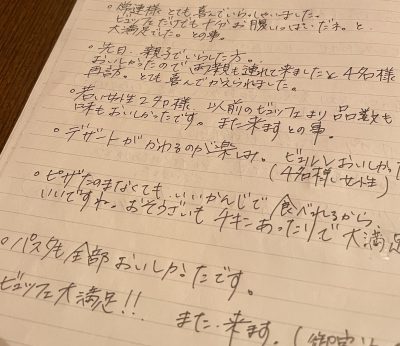 ・常連様 とても喜んでいらっしゃいました。
ビュッフェだけでも十分お腹いっぱいだネ。と
大満足でした。との事。
・先日、親子でいらした方。
おいしかったので 両親も連れて来ましたと 4名様
再訪。とても喜んでかえられました。
・若い女性2名様 以前のビュッフェより 品数も
味もおいしかったです。 また来ます との事。
・デザートが かわるのが楽しみ。 おいしかっ
(4名様 女性)
・ピザたのまなくても いいかんじで 食べれるから
いいですね。おそうざいも チキンあったりで 大満足
・パスタも全部おいしかったです。
ビュッフェ大満足!! また来ます。